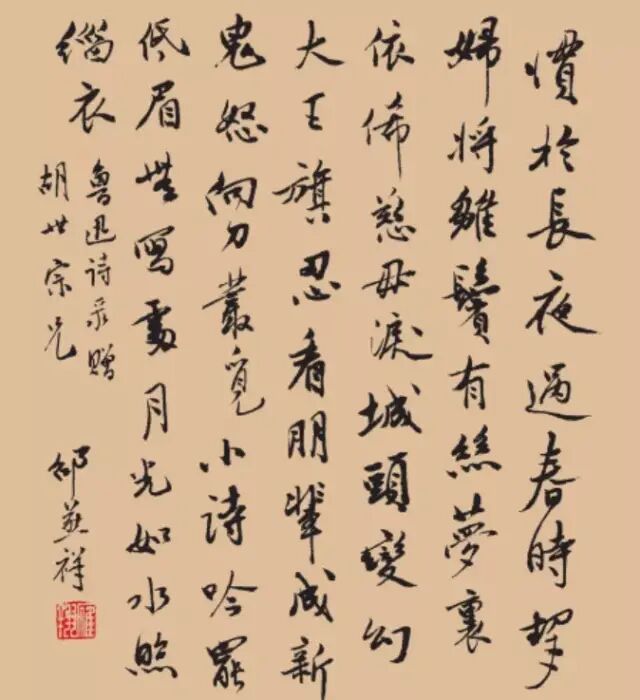 慣於長夜過春時挈
婦將雛鬢有絲夢裏
依俙慈母淚城頭變幻
大王旗忍看朋輩成新
鬼怒向刀叢覓小詩吟罷
低眉無寫處月光如水照
緇衣
魯迅詩录赠
胡世宗兄
邵燕祥